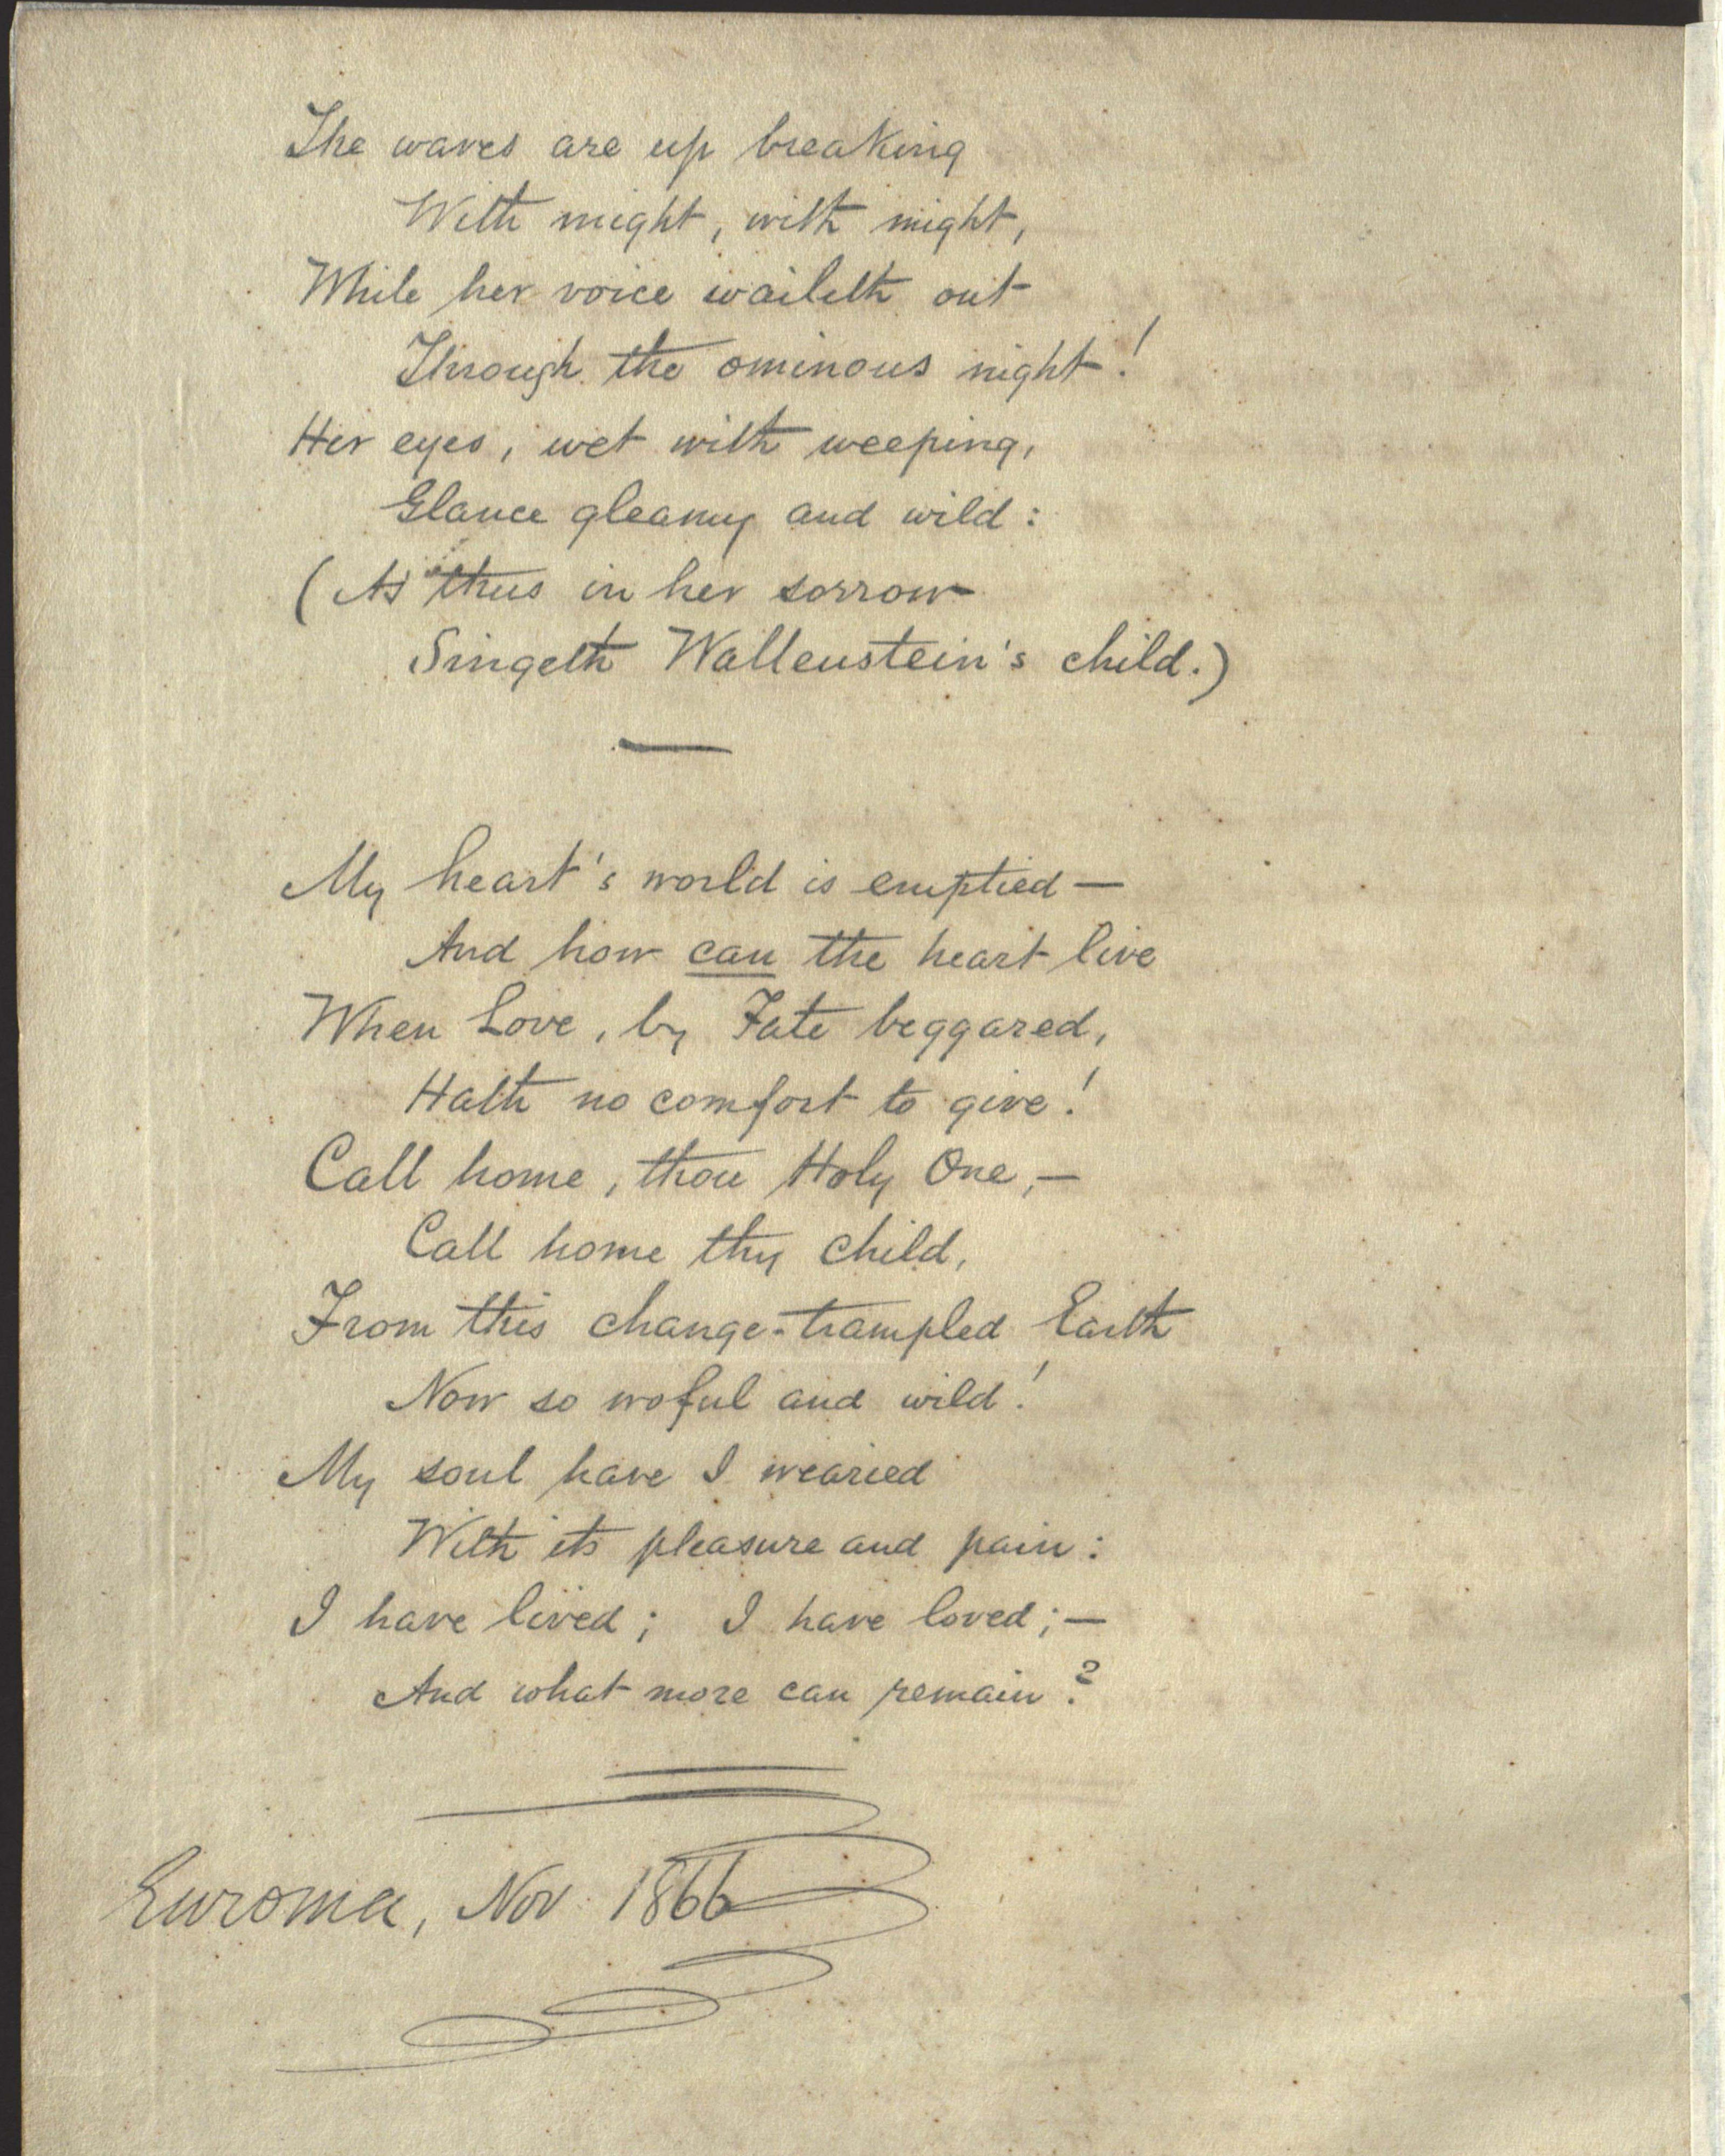 The waves are up breaking
With might, with might,
While her voice waileth out
Through the ominous night!
Her eyes, wet with weeping,
Glance gleamy and wild:
(As thus in her sorrow
Singeth Wallenstein's child.)
My heart's world is emptied—
And how can the heart live
When Love, by Fate beggared,
Hath no comfort to give!
Call home, thou Holy One,—
Call home thy child,
From this change-trampled Earth
Now so woful and wild!
My soul have I wearied
With its pleasure and pain:
I have lived; I have loved;—
And what more can remain?
Euroma, Nov 1866